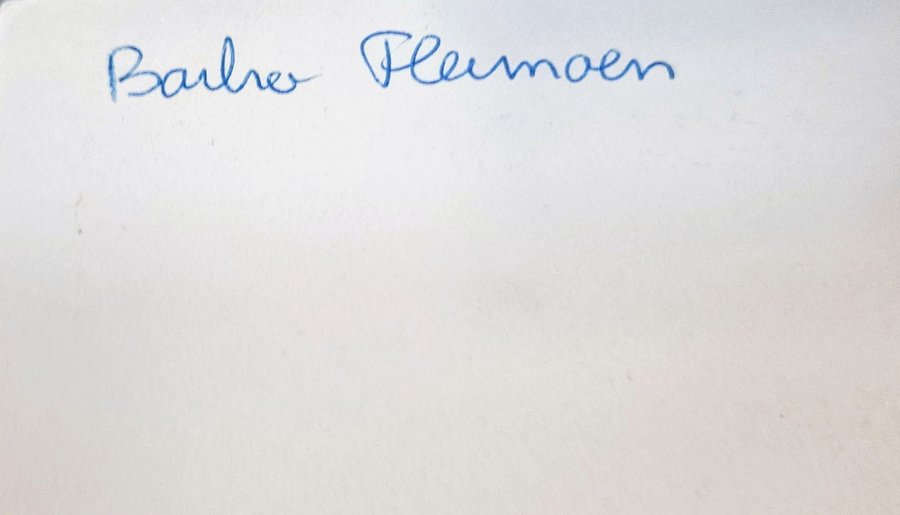 Barbro Fleumoen